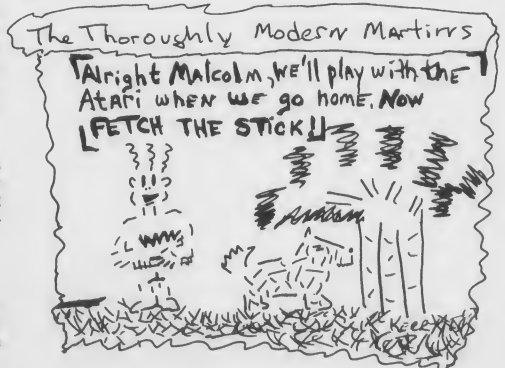 The Thoroughly Modern Martins
Alright Malcolm, WE'll play with the
Atari when WE go home. Now
FETCH THE STICK!!